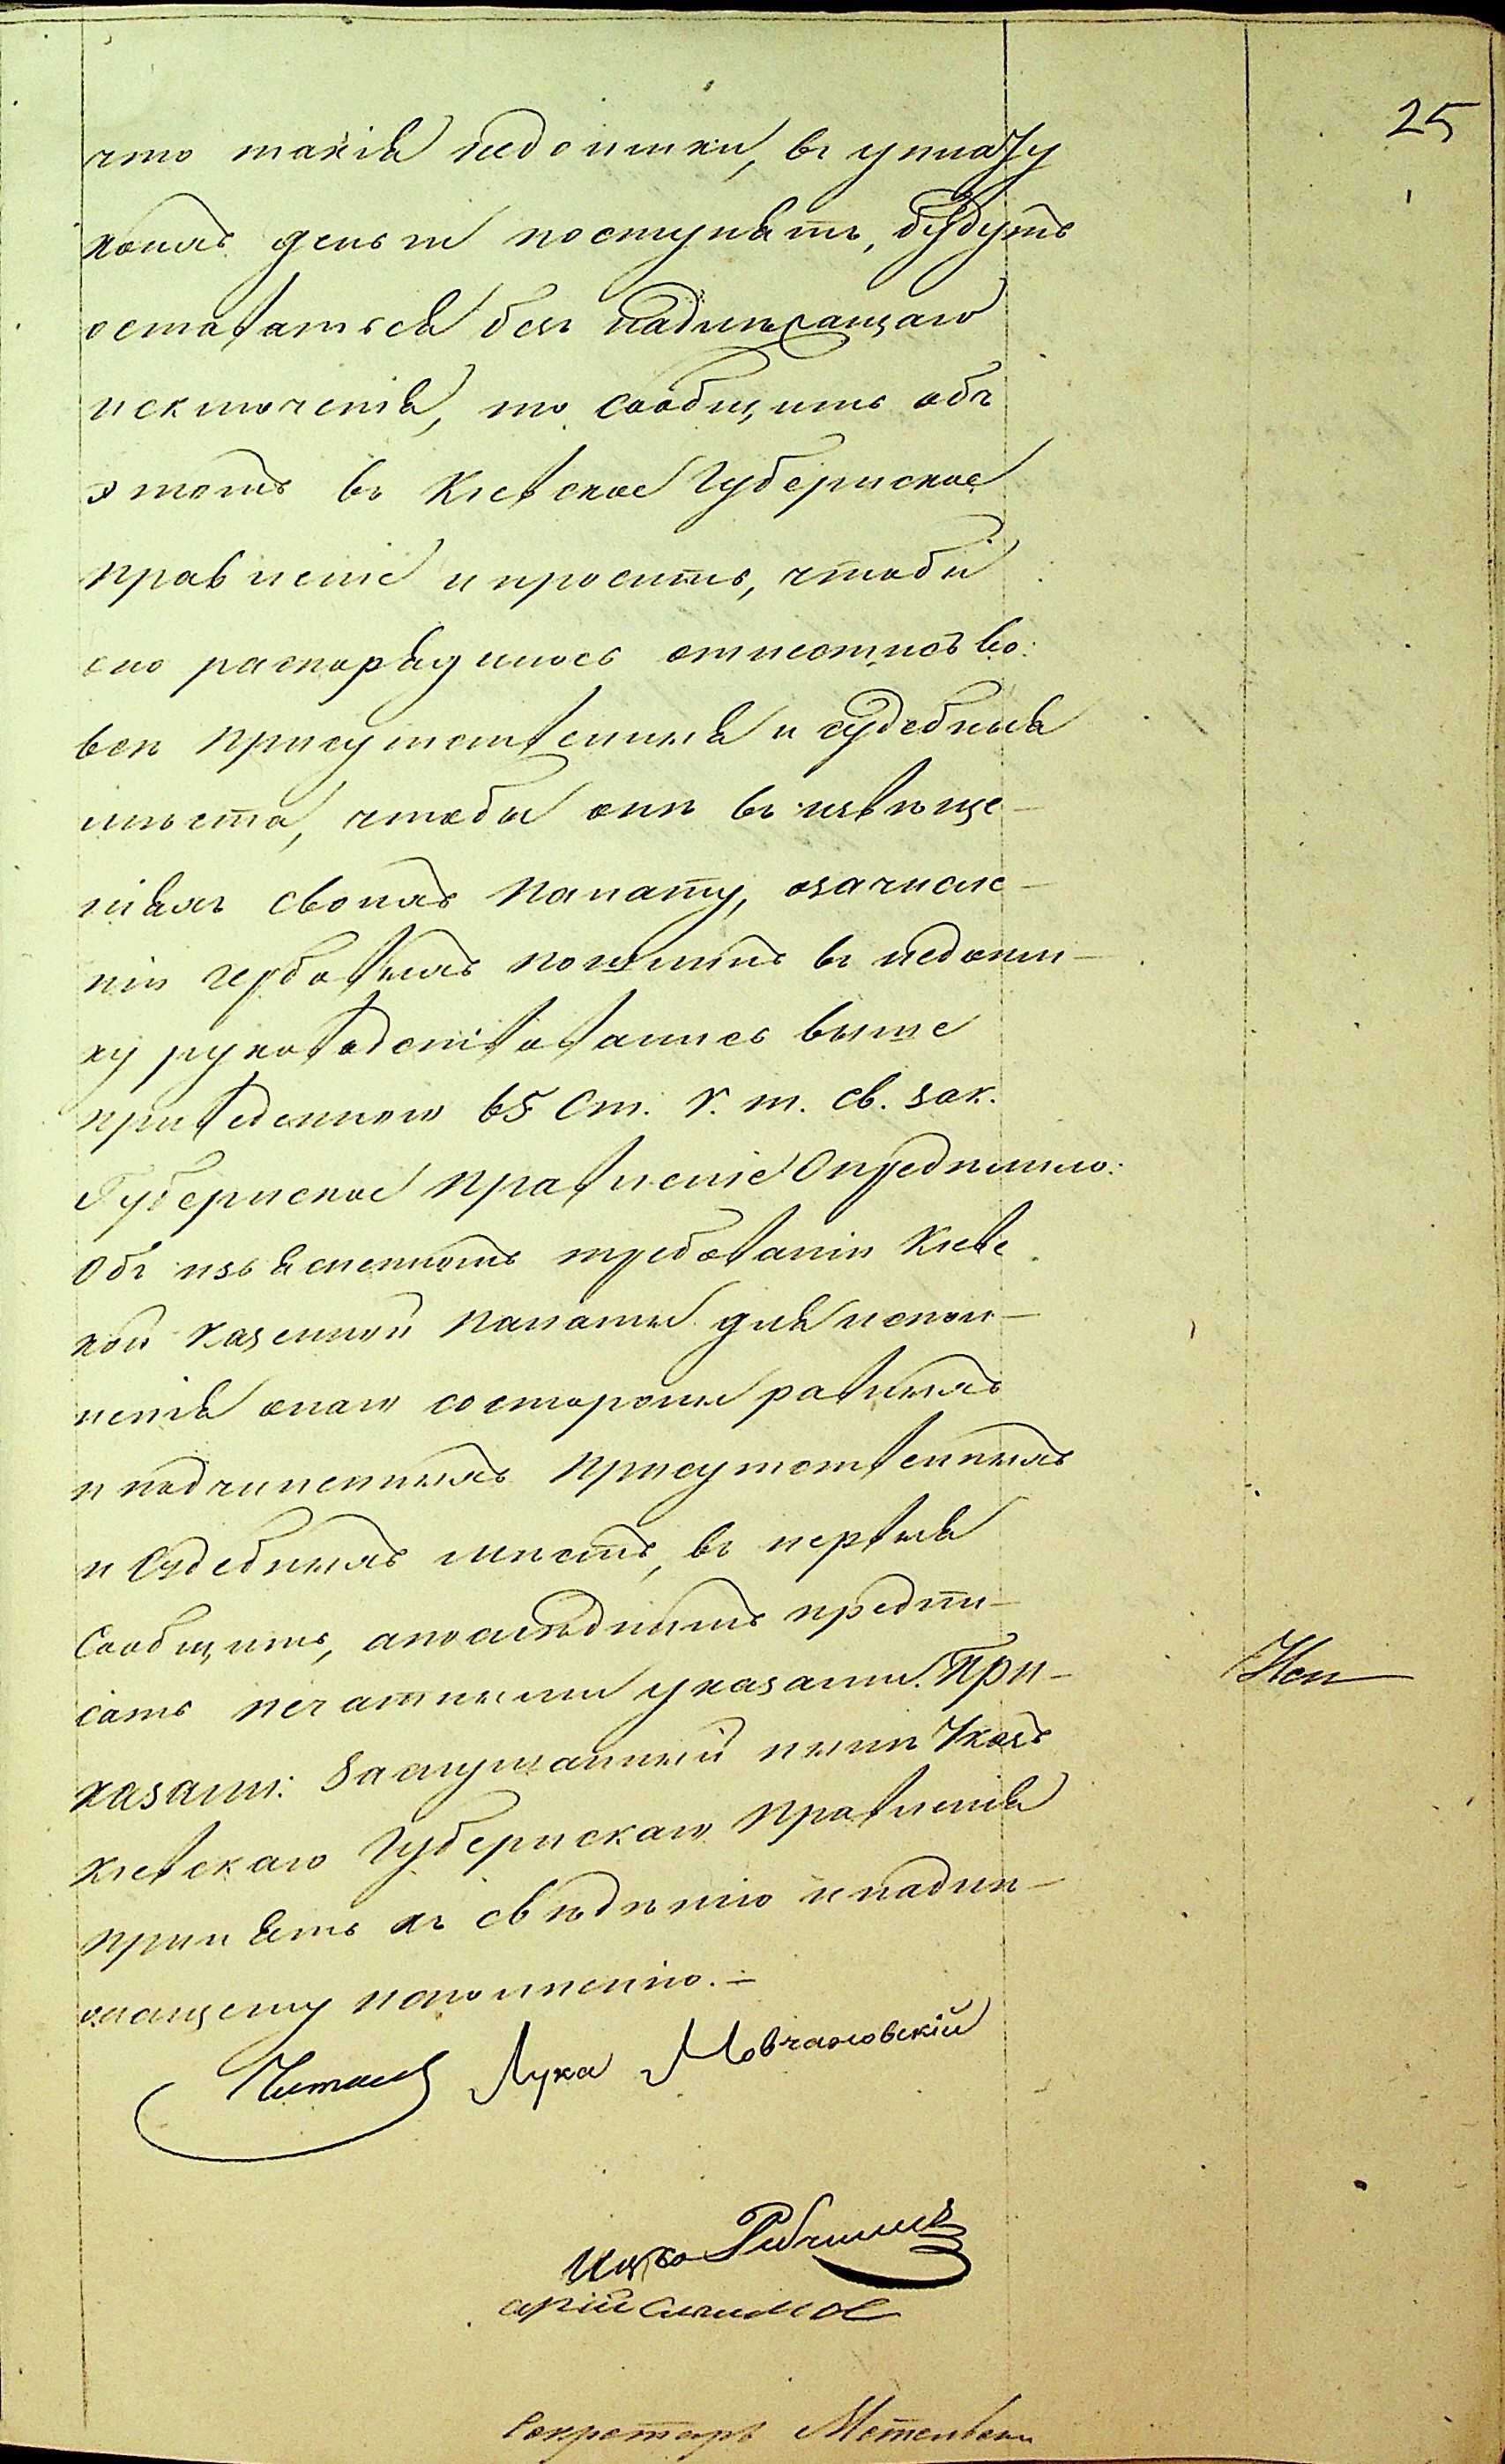 25
что такія недоимки, въ уплату
коихъ деньги поступятъ, будутъ
оставаться безъ надлежащаго
исключенія, то сообщить объ
этомъ въ Кіевское Губернское
Правленіе и просить, чтобы
оно распорядилось относительно
всѣ присутственныя и судебныя
мѣста, чтобы они въ извѣще-
ніяхъ своихъ Палату, о зачисле-
ніи гербовыхъ пошлинъ въ недоим-
ку руководствовались выше
приведенною 65 Ст. V. т. Св. зак.
Губернское Правленіе Опредѣлило:
Объ изъясненномъ требованіи Кіевс
кой Казенной Палаты для испол-
ненія онаго со стороны равныхъ
и подчиненныхъ Присутственныхъ
и Судебныхъ мѣстъ, въ первыя
Сообщить, а послѣднимъ предпи-
сать печатными указами. При-
казали: Заслушанный нынѣ Указъ
Кіевскаго Губернскаго Правленія
принять къ свѣдѣнію и надле-
жащему исполненію.-
Исп
Читалъ Лука Мовчановскій
Ицко
Секретарь